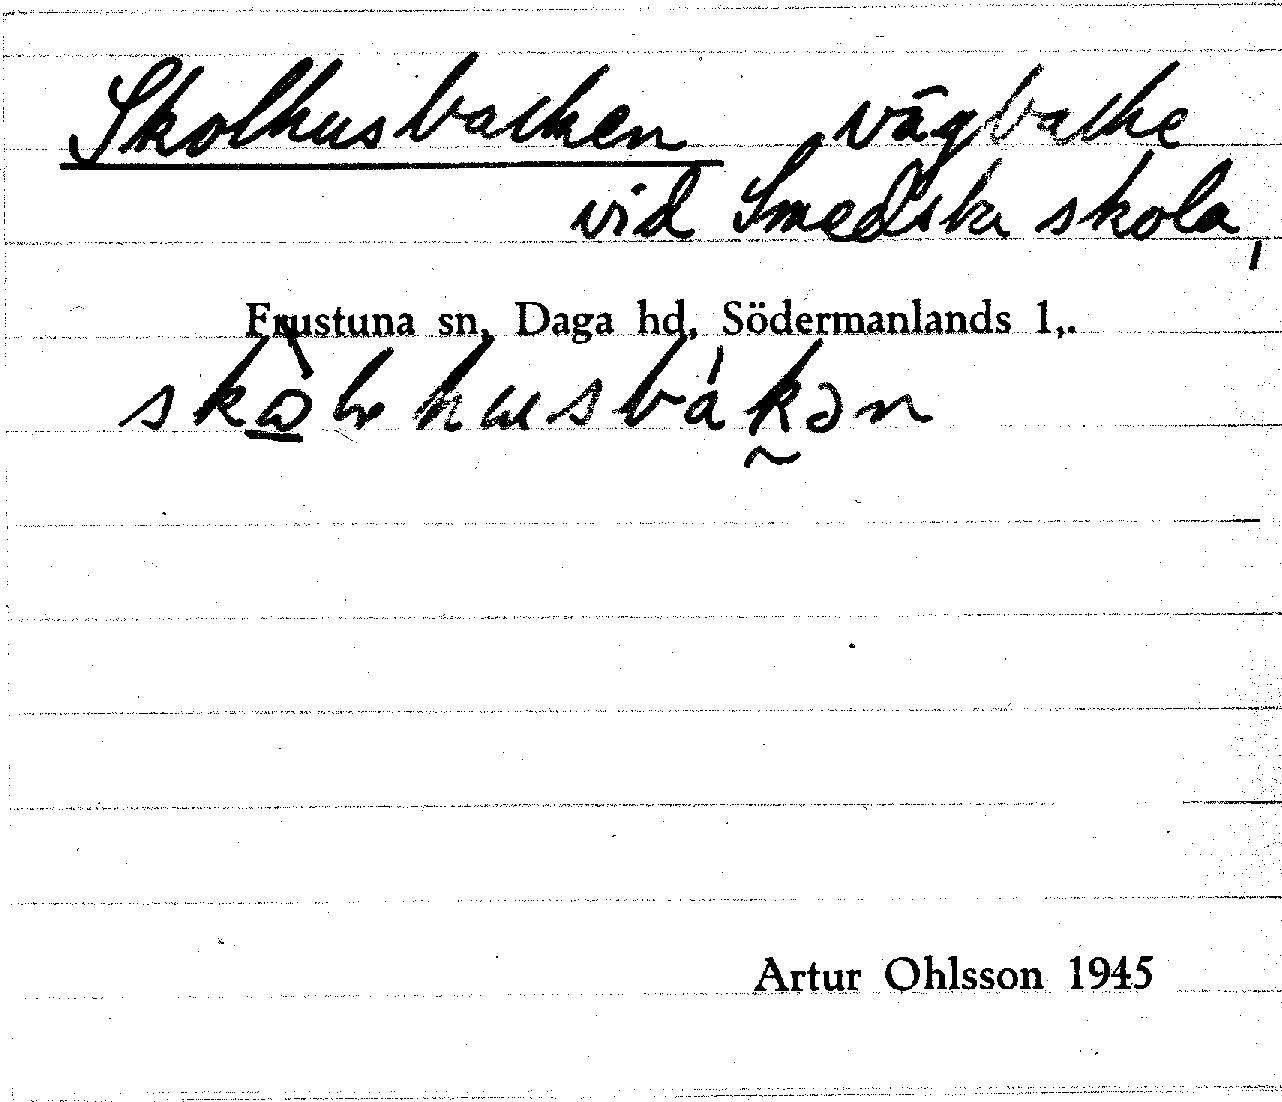 Skolhusbacken vägbacke
vid Smedska skola,
Frustuna sn, Daga hd, Södermanlands l,.
Artur Ohlsson 1945